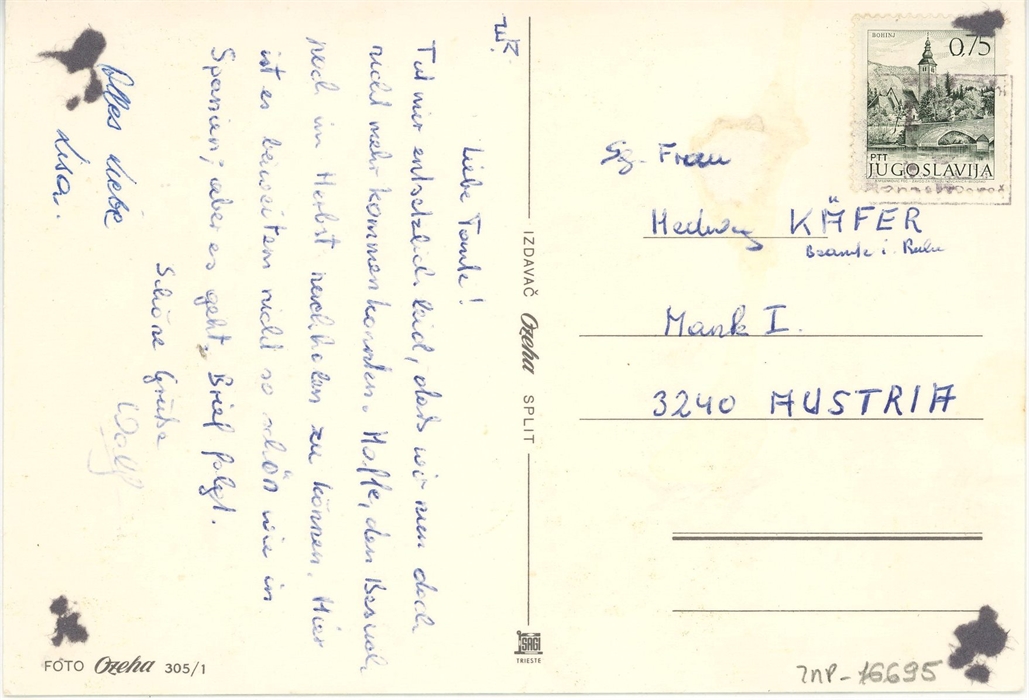 Liebe Tante!
Tut mir entsetzlich leid, daß wir nun doch
nicht mehr kommen konnten. Hoffe, den Besuch
noch im Herbst nachholen zu können. Hier
ist es bei weitem nicht so schön wie in
Spanien, aber es geht. Brief folgt.
Schöne Grüße
Wolf
Alles Liebe
Lisa.
IZDAVAČ Ozeha SPLIT
FOTO Ozeha 305/1
SAGI
TRIESTE
BOHINJ
0,75
PTT
JUGOSLAVIJA
Frau
Hedwig KÄFER
Beamte i. Ruhe
Mank I.
3240 AUSTRIA
INP-16695